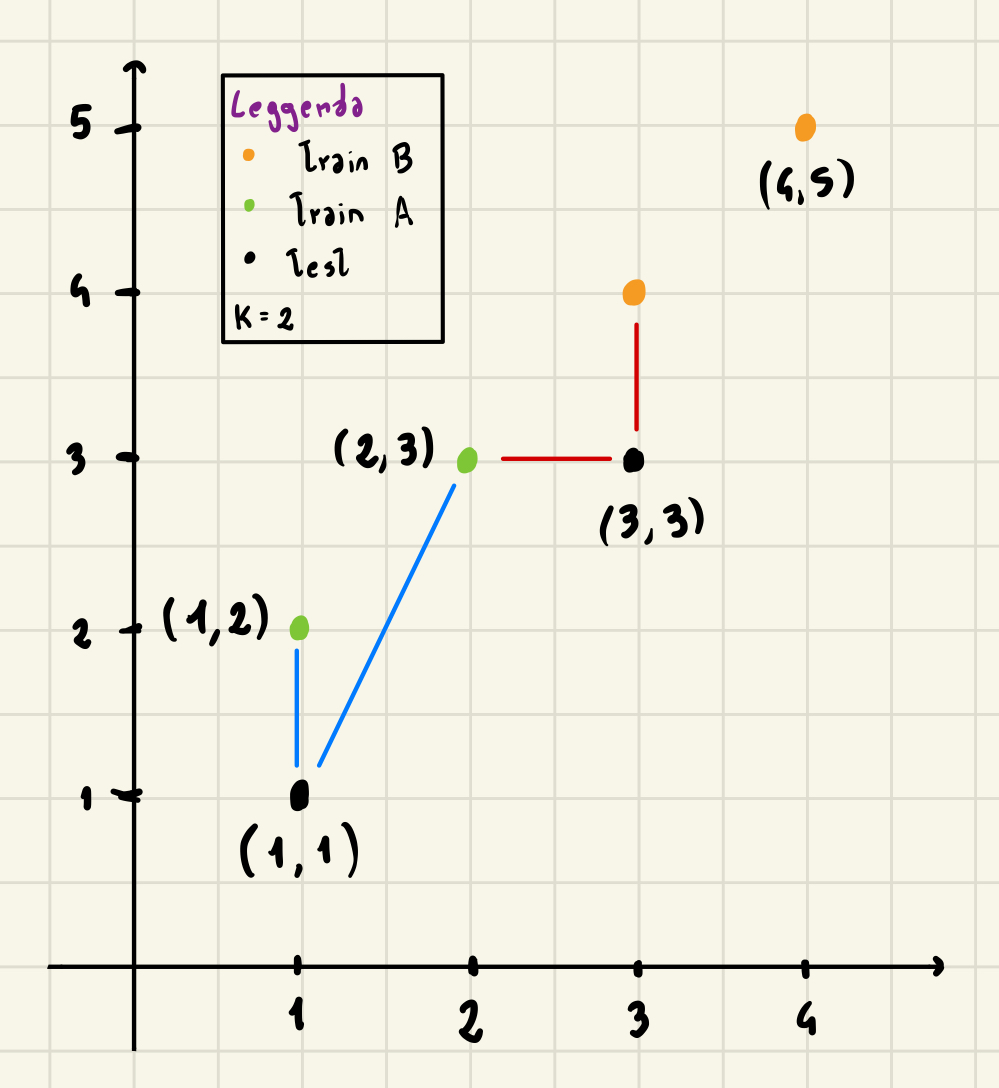 Leggenda
Train B
Train A
Test
K = 2
5
4
3
2
1
(4,5)
(2,3)
(3,3)
(1,2)
(1,1)
1 2 3 4